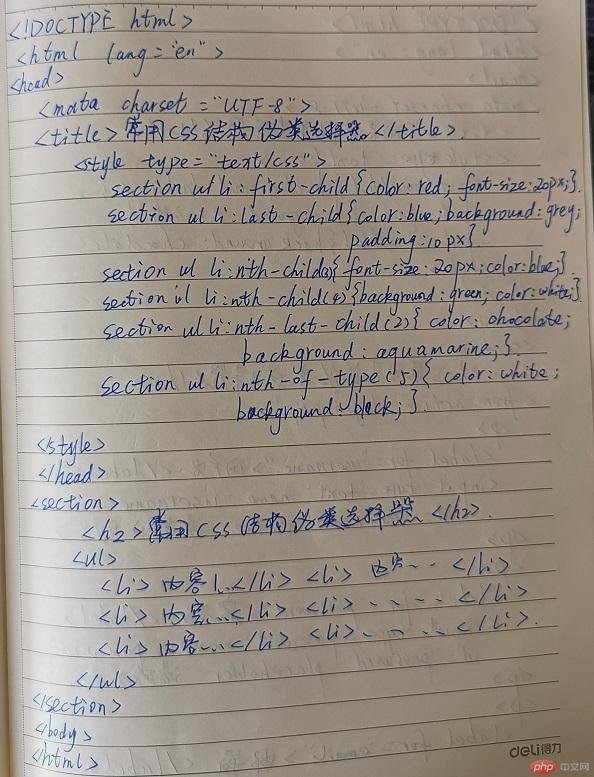 <!DOCTYPE html>
<html lang="en">
<head>
<mata charset="UTF-8">
<title>常用CSS结构伪类选择器</title>
<style type="text/css">
section ul li:first-child{color:red; font-size:20px;}
section ul li:last-child{color:blue; background:grey;
padding:10px}
section ul li:nth-child(3){font-size:20px;color:blue;}
section ul li:nth-child(4){background:green; color:white;}
section ul li:nth-last-child(2){color:chocolate;
background:aquamarine;}
section ul li:nth-of-type(5){color:white;
background:black;}
</style>
</head>
<section>
<h2>常用CSS结构伪类选择器</h2>
<ul>
<li>内容1...</li> <li>内容...</li>
<li>内容...</li> <li>....</li>
<li>内容...</li> <li>....</li>
</ul>
</section>
</body>
</html>
deli得力
php 中文网